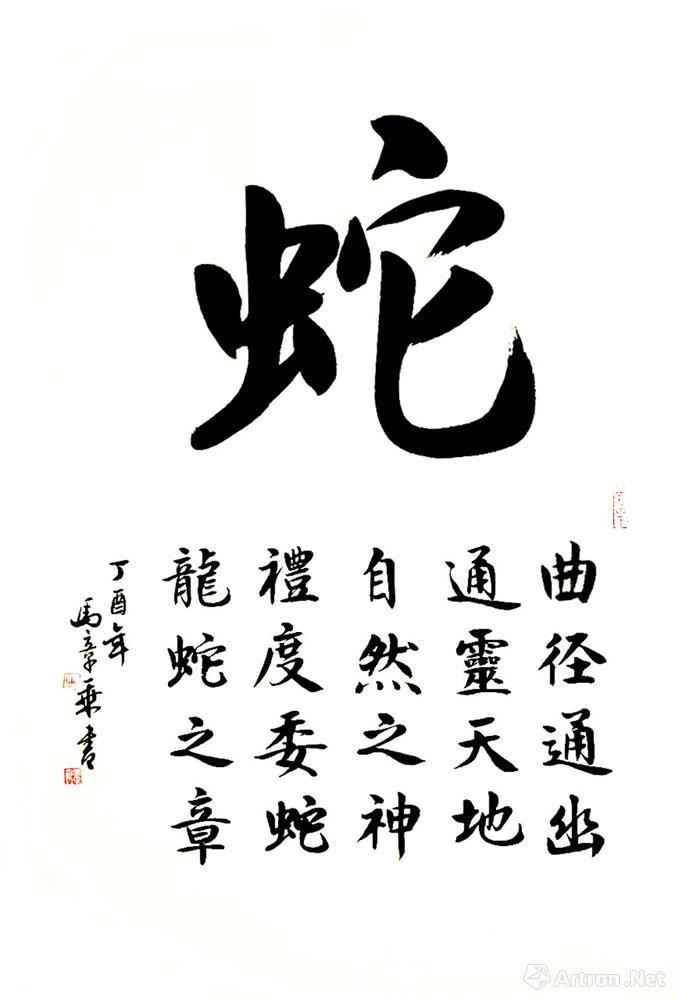 蛇
曲径通幽
通靈天地
自然之神
禮度委蛇
龍蛇之章
丁酉年
馬章乘書
Artron.Net